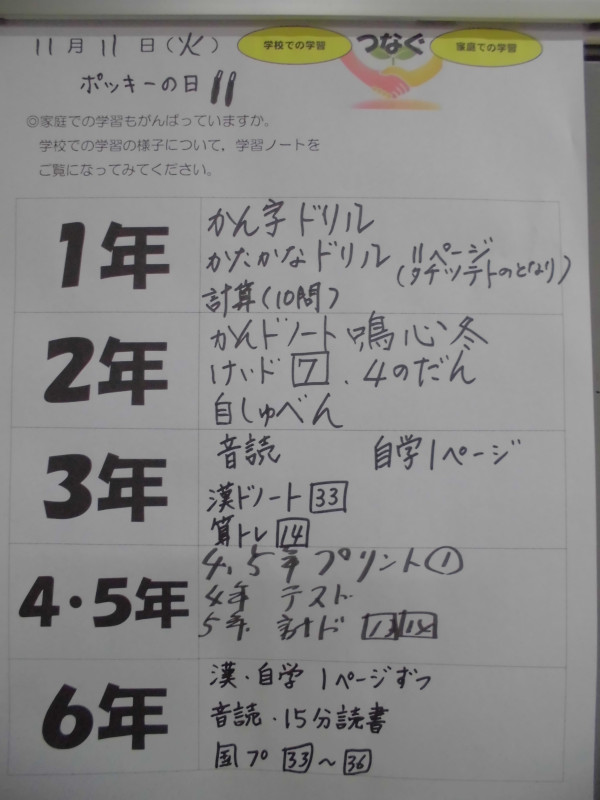 11月11日(火)
学校での学習 つなぐ 家庭での学習
ポッキーの日
◎家庭での学習もがんばっていますか。
学校での学習の様子について，学習ノートを
ご覧になってみてください。
1年
かん字ドリル
かたかなドリル 11ページ
(タチツテトのとなり)
計算(10問)
2年
かんドノート 鳴 心 冬
けいド 7 . 4のだん
自しゅべん
3年
音読 自学1ページ
漢ドノート 33
算トレ 14
4・5年
4.5年プリント①
4年 テスト
5年 計ド 13
6年
漢・自学 1ページずつ
音読・15分読書
国プ 33〜36